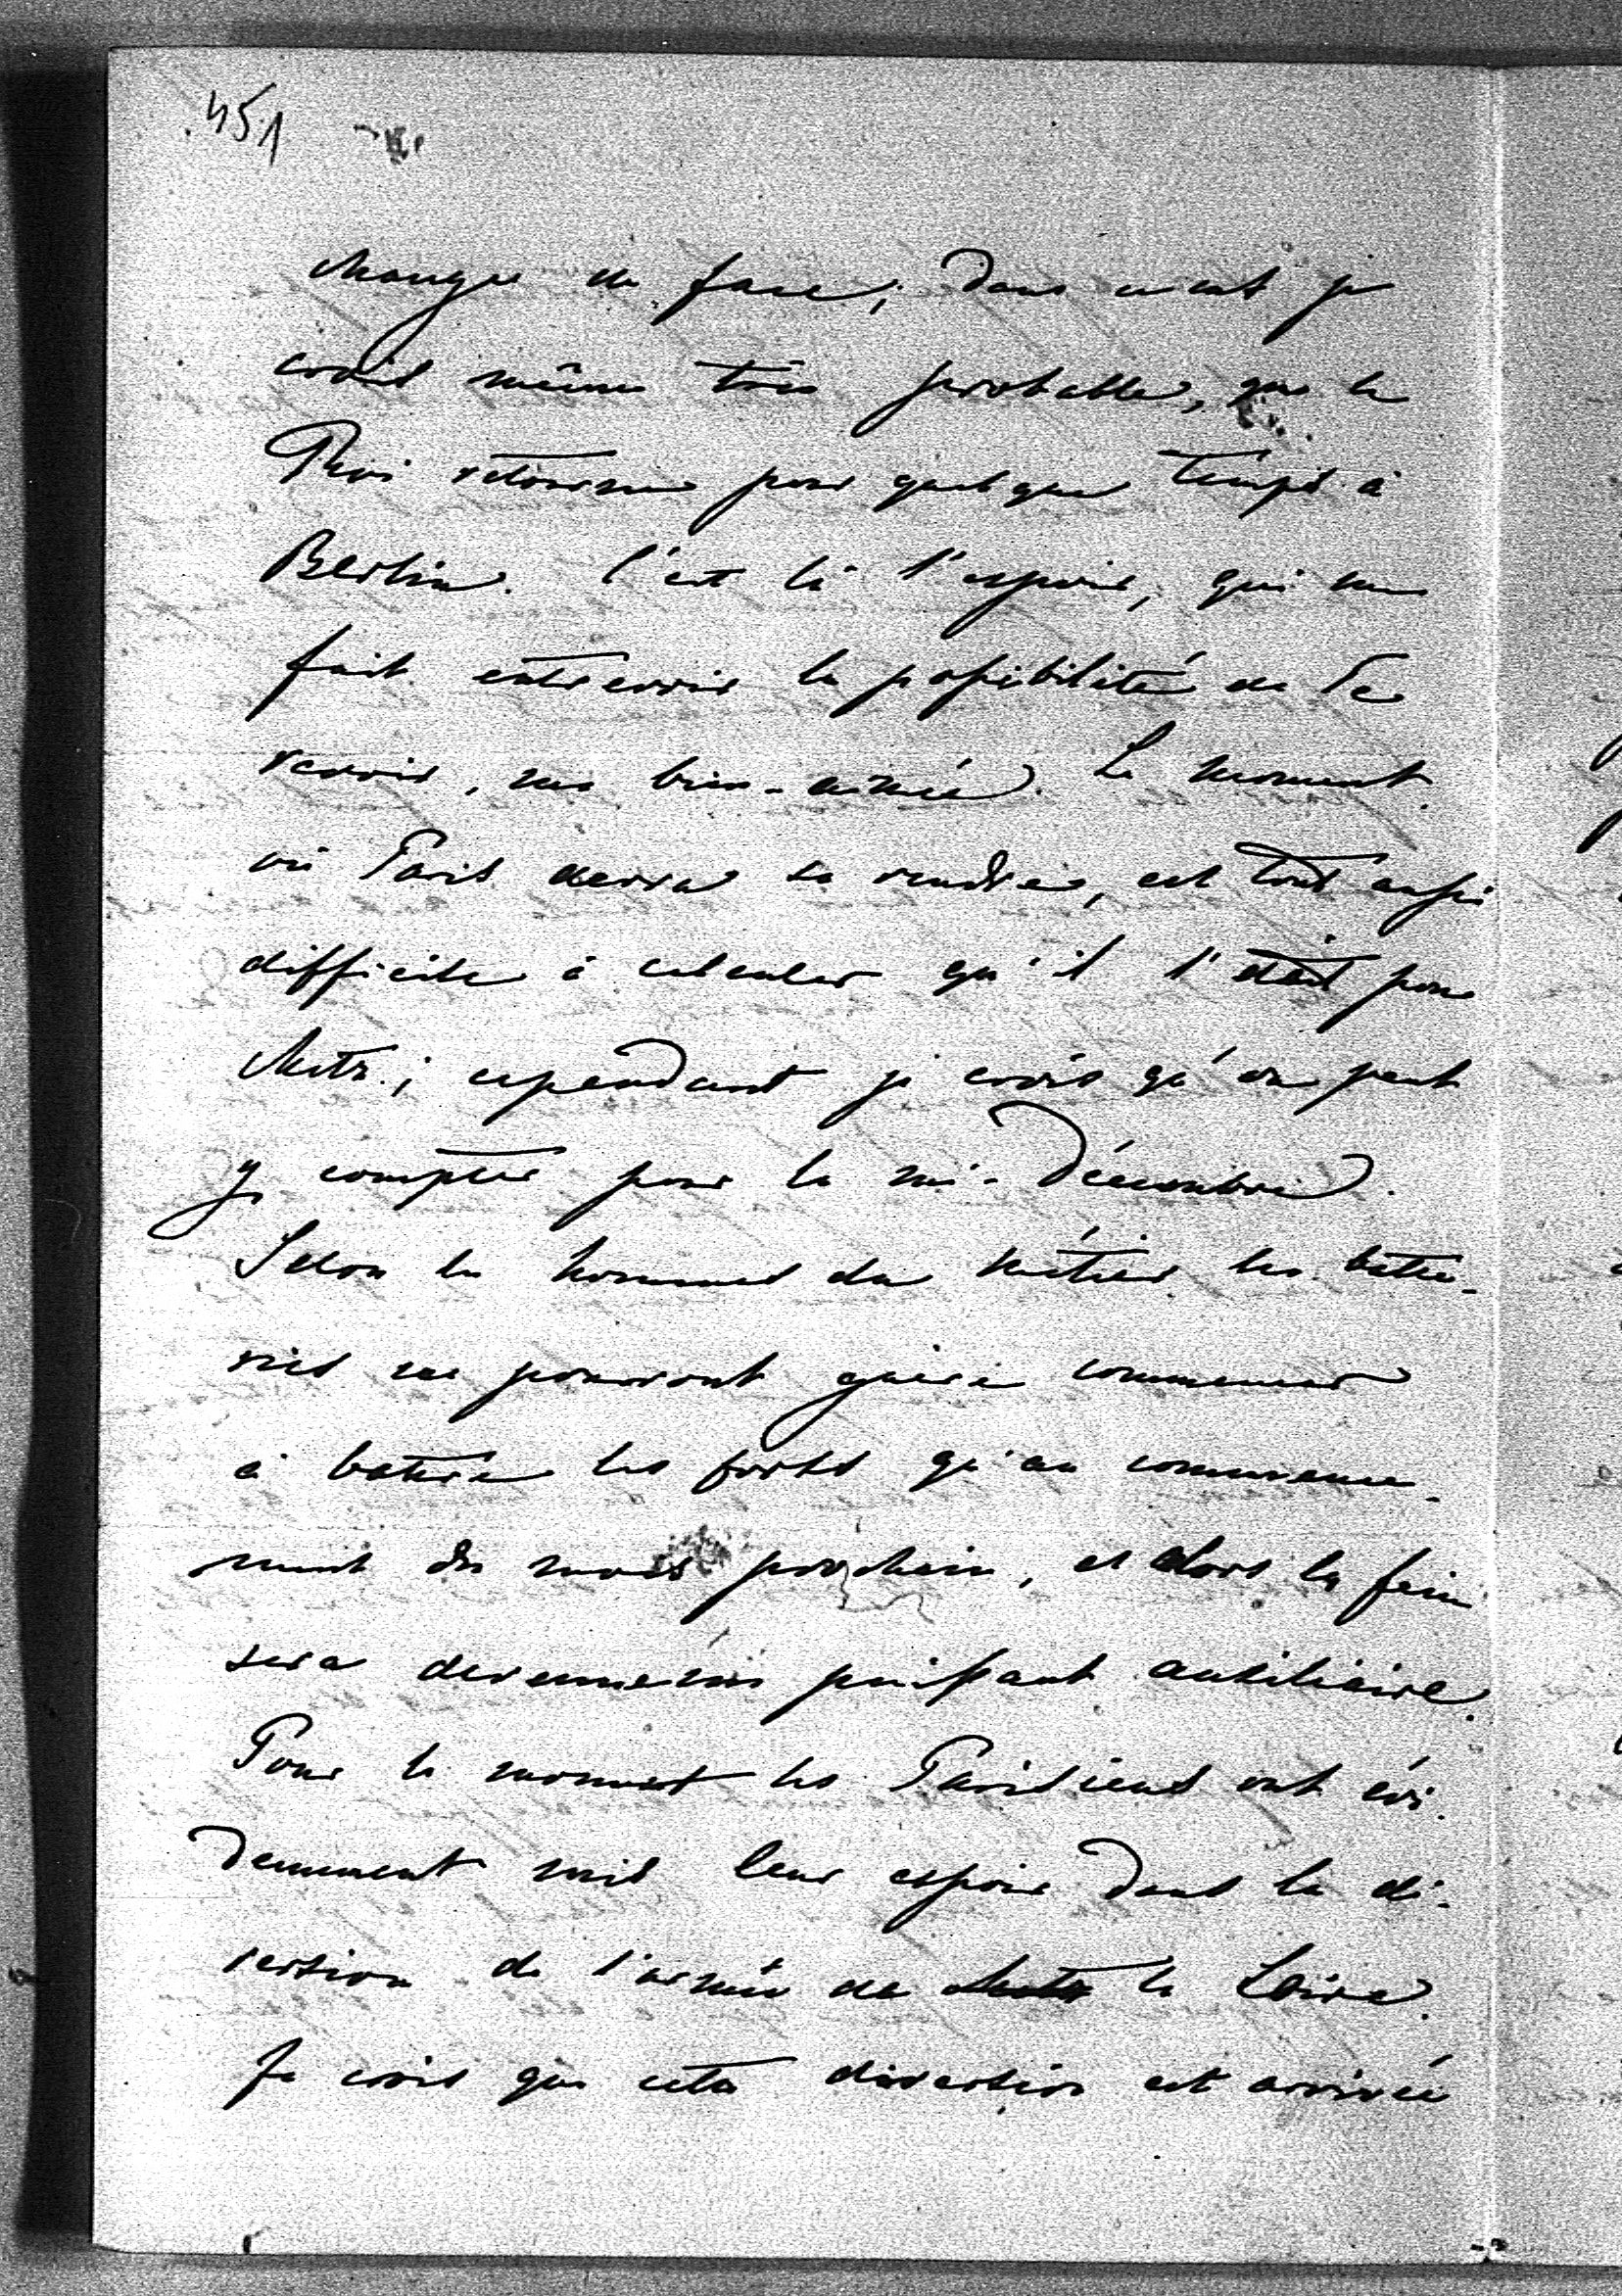 451
change de face; dans ce cas je
crois même très probable, que le
Roi retourne pour quelque temps à
Berlin. C'est là l'espoir, qui me
fait entrevoir la possibilité de Te
revoir, ma bien-aimée. Le moment
où Paris devra se rendre, est tout aussi
difficile à calculer qu'il l'était pour
Metz; cependant je crois qu'on peut
y compter pour la mi-Décembre.
Selon les hommes du métier les batte-
ries ne pourront guère commencer
à battre les forts qu'au commence-
ment du mois prochain, et alors la faim
sera devenue un puissant auxiliaire.
Pour le moment les Parisiens ont évi-
demment mis leur espoir dans la di-
version de l'armée de Metz la Loire.
Je crois que cette diversion est arrivée